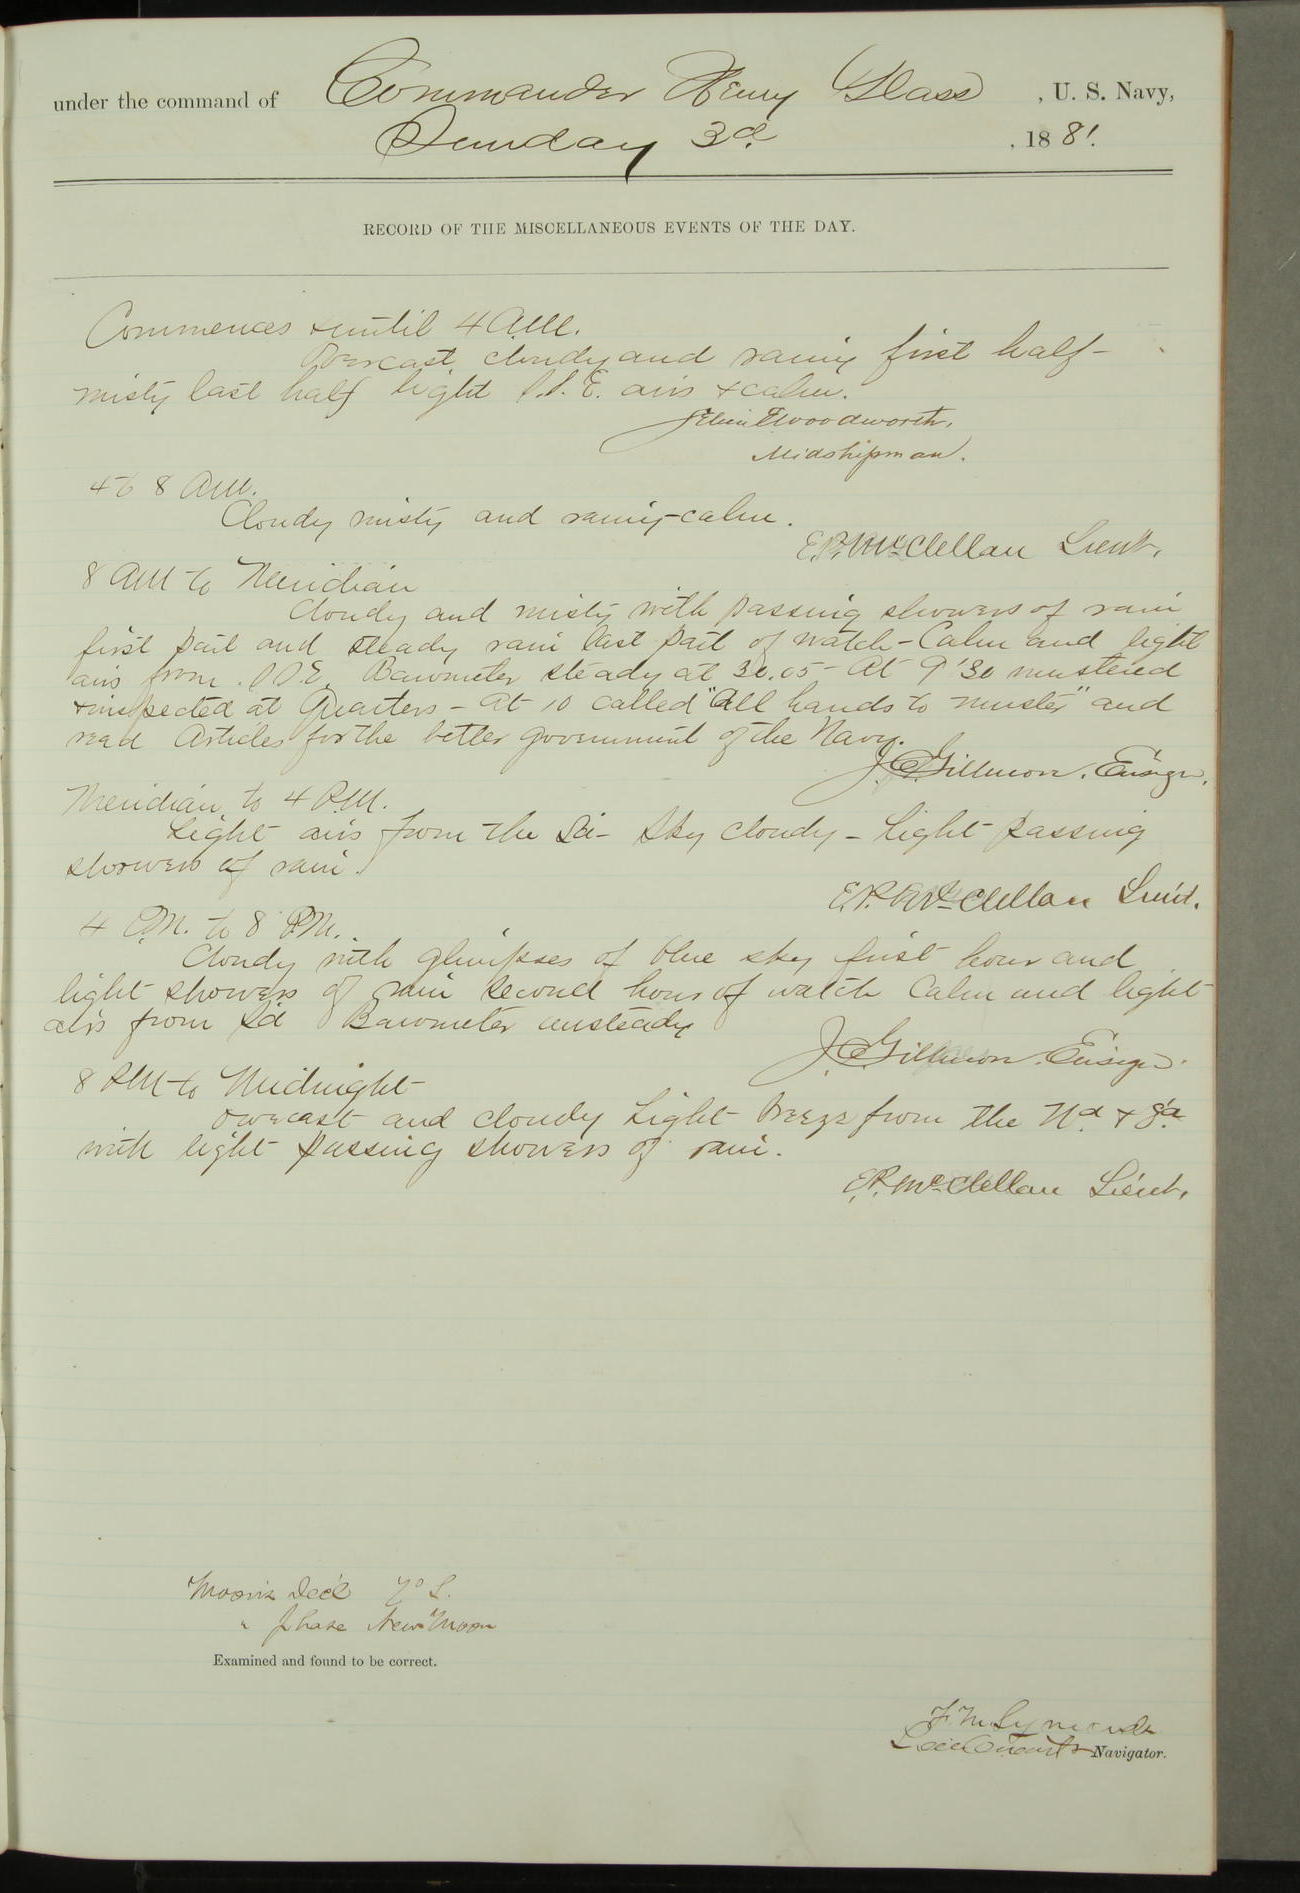 under the command of Commander Henry Glass, U. S. Navy,
Sunday 3d, 1881.
RECORD OF THE MISCELLANEOUS EVENTS OF THE DAY.
Commences & until 4 A.M.
Overcast, cloudy and rainy first half-
misty last half light S.S.E. airs & calm.
Selim E Woodworth,
Midshipman.
4 to 8 A.M.
Cloudy misty and rainy-calm.
E.P. McClellan Lieut.
8 AM to Meridian
Cloudy and misty with passing showers of rain
first part and steady rain last part of watch - Calm and light
airs from S.S.E. Barometer steady at 30.05 - At 9'30 mustered
& inspected at Quarters - At 10 called "All hands to muster" and
read Articles for the better government of the Navy.
J.C. Gillmore. Ensign.
Meridian to 4 P.M.
Light airs from the Sd - Sky cloudy - Light passing
showers of rain.
E.P. McClellan Lieut.
4 P.M. to 8 P.M.
Cloudy with glimpses of blue sky first hour and
light showers of rain second hour of watch Calm and light
airs from Sd Barometer unsteady
J.C. Gillmore. Ensign.
8 PM to Midnight
Overcast and cloudy Light breeze from the Nd & Ed
with light passing showers of rain.
E.P. McClellan Lieut.
Moon's Decl 7° S.
" Phase New Moon
Examined and found to be correct.
F. M. Symonds
Lieut Navigator.